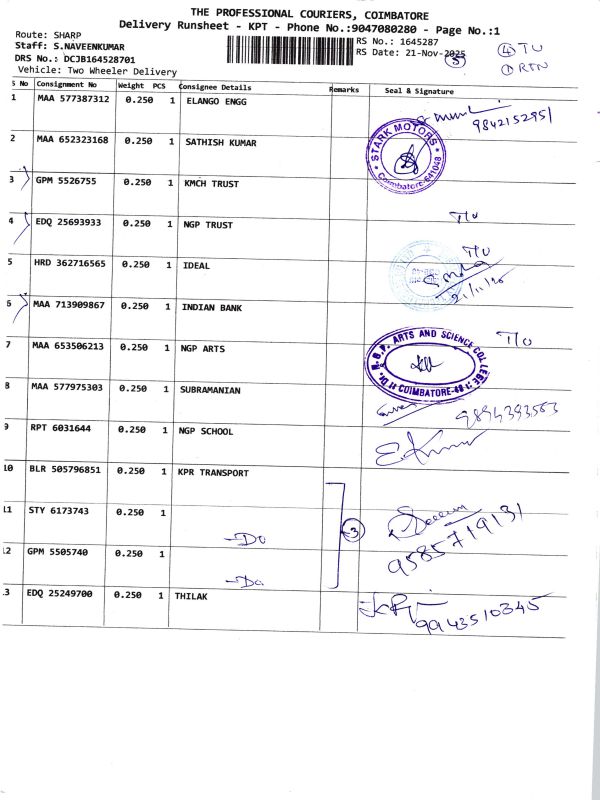 THE PROFESSIONAL COURIERS, COIMBATORE
Delivery Runsheet - KPT - Phone No.:9047080280 - Page No.:1
Route: SHARP
Staff: S.NAVEENKUMAR
DRS No.: DCJB164528701
Vehicle: Two Wheeler Delivery
RS No.: 1645287
RS Date: 21-Nov-2025
5
4 TU
1 RTN
S No Consignment No Weight PCS Consignee Details Remarks Seal & Signature
1 MAA 577387312 0.250 1 ELANGO ENGG
9842152951
2 MAA 652323168 0.250 1 SATHISH KUMAR
* STARK MOTORS * Coimbatore-641048
3 GPM 5526755 0.250 1 KMCH TRUST
T/U
4 EDQ 25693933 0.250 1 NGP TRUST
T/U
5 HRD 362716565 0.250 1 IDEAL
21/11/25
6 MAA 713909867 0.250 1 INDIAN BANK
T/U
7 MAA 653506213 0.250 1 NGP ARTS
Dr. N.G.P. ARTS AND SCIENCE COLLEGE COIMBATORE-48
8 MAA 577975303 0.250 1 SUBRAMANIAN
9894393563
9 RPT 6031644 0.250 1 NGP SCHOOL
E.Kumar
10 BLR 505796851 0.250 1 KPR TRANSPORT
11 STY 6173743 0.250 1 -Do
3
9585719131
12 GPM 5505740 0.250 1 -Do
13 EDQ 25249700 0.250 1 THILAK
9943510345